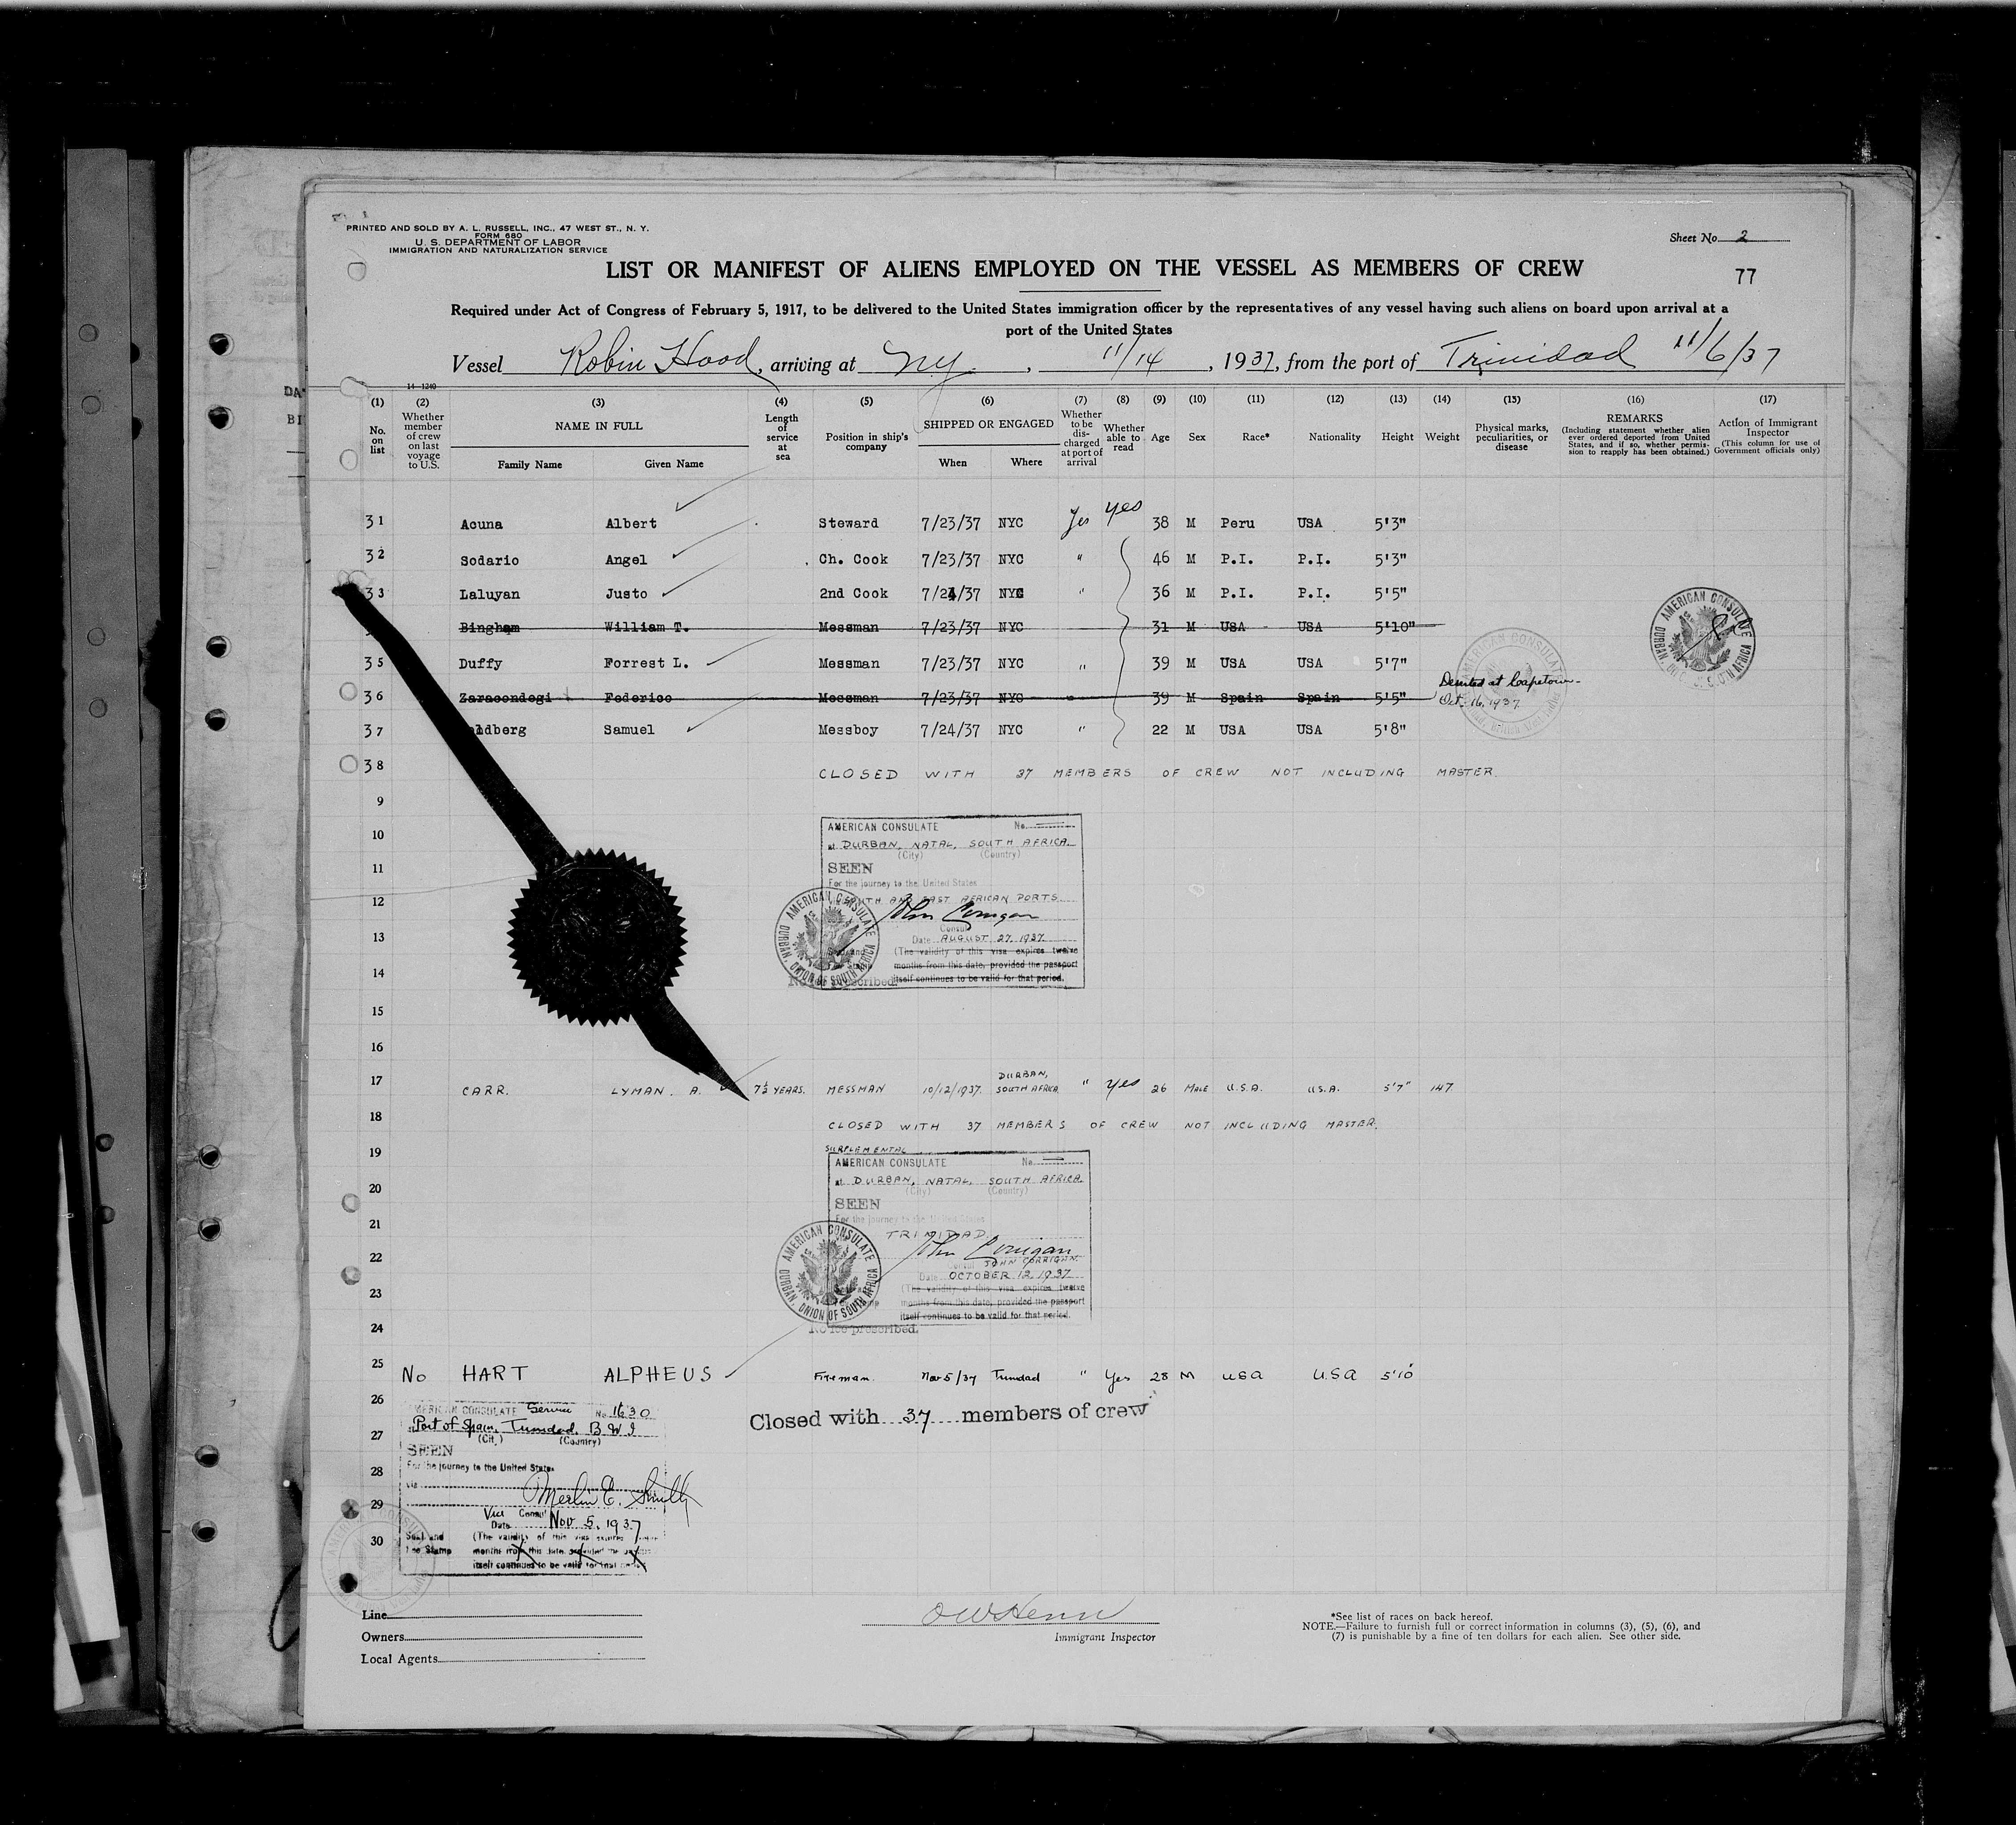 PRINTED AND SOLD BY A. L. RUSSELL, INC., 47 WEST ST., N. Y.
FORM 680
U. S. DEPARTMENT OF LABOR
IMMIGRATION AND NATURALIZATION SERVICE
Sheet No. 2
LIST OR MANIFEST OF ALIENS EMPLOYED ON THE VESSEL AS MEMBERS OF CREW
77
Required under Act of Congress of February 5, 1917, to be delivered to the United States immigration officer by the representatives of any vessel having such aliens on board upon arrival at a
port of the United States
Vessel Robin Hood, arriving at NY, 11/14, 1937, from the port of Trinidad 11/6/37
14-1240
(1) (2) (3) (4) (5) (6) (7) (8) (9) (10) (11) (12) (13) (14) (15) (16) (17)
No. on list
Whether member of crew on last voyage to U.S.
NAME IN FULL
Family Name Given Name
Length of service at sea
Position in ship's company
SHIPPED OR ENGAGED
When Where
Whether to be discharged at port of arrival
Whether able to read
Age Sex Race* Nationality Height Weight
Physical marks, peculiarities, or disease
REMARKS
(Including statement whether alien ever ordered deported from United States, and if so, whether permission to reapply has been obtained.)
Action of Immigrant Inspector
(This column for use of Government officials only)
31 Acuna Albert Steward 7/23/37 NYC Yes yes 38 M Peru USA 5'3"
32 Sodario Angel Ch. Cook 7/23/37 NYC " 46 M P.I. P.I. 5'3"
33 Laluyan Justo 2nd Cook 7/24/37 NYC " 36 M P.I. P.I. 5'5"
Bingham William T. Messman 7/23/37 NYC 31 M USA USA 5'10"
35 Duffy Forrest L. Messman 7/23/37 NYC " 39 M USA USA 5'7"
36 Zaracondegi Federico Messman 7/23/37 NYC " 39 M Spain Spain 5'5" Deserted at Capetown Oct. 16, 1937
37 ldberg Samuel Messboy 7/24/37 NYC " 22 M USA USA 5'8"
38 CLOSED WITH 37 MEMBERS OF CREW NOT INCLUDING MASTER
AMERICAN CONSULATE
DURBAN,
9
10
11
12
13
14
15
16
AMERICAN CONSULATE No.
at DURBAN, NATAL, SOUTH AFRICA.
(City) (Country)
SEEN
For the journey to the United States
SOUTH AND EAST AFRICAN PORTS
John Corrigan
Consul
Date AUGUST 27, 1937
(The validity of this visa expires twelve
months from this date, provided the passport
itself continues to be valid for that period.
AMERICAN CONSULATE
DURBAN, UNION OF SOUTH AFRICA
No fee prescribed.
17 CARR. LYMAN. A. 7½ YEARS. MESSMAN 10/12/1937. DURBAN, SOUTH AFRICA " Yes 26 MALE U.S.A. U.S.A. 5'7" 147
18 CLOSED WITH 37 MEMBERS OF CREW NOT INCLUDING MASTER.
19
20
21
22
23
24
SUPPLEMENTAL
AMERICAN CONSULATE No.
at DURBAN, NATAL, SOUTH AFRICA.
(City) (Country)
SEEN
For the journey to the United States
TRINIDAD
John Corrigan
Consul JOHN CORRIGAN.
Date OCTOBER 12, 1937
(The validity of this visa expires twelve
months from this date, provided the passport
itself continues to be valid for that period.
AMERICAN CONSULATE
DURBAN, UNION OF SOUTH AFRICA
No fee prescribed.
25 No HART ALPHEUS Fireman. Nov 5/37 Trinidad " Yes 28 M USA USA 5'10"
Closed with 37 members of crew
26
27
28
29
30
AMERICAN CONSULATE Service No 1630
Port of Spain, Trinidad, B W I
(City) (Country)
SEEN
For the journey to the United States
via
Merlin E. Smith
Vice Consul
Date Nov 5, 1937
Seal and
Fee Stamp
(The validity of this visa expires
months from this date, provided the
itself continues to be valid for that period
Line
Owners
Local Agents
Immigrant Inspector
*See list of races on back hereof.
NOTE.—Failure to furnish full or correct information in columns (3), (5), (6), and
(7) is punishable by a fine of ten dollars for each alien. See other side.